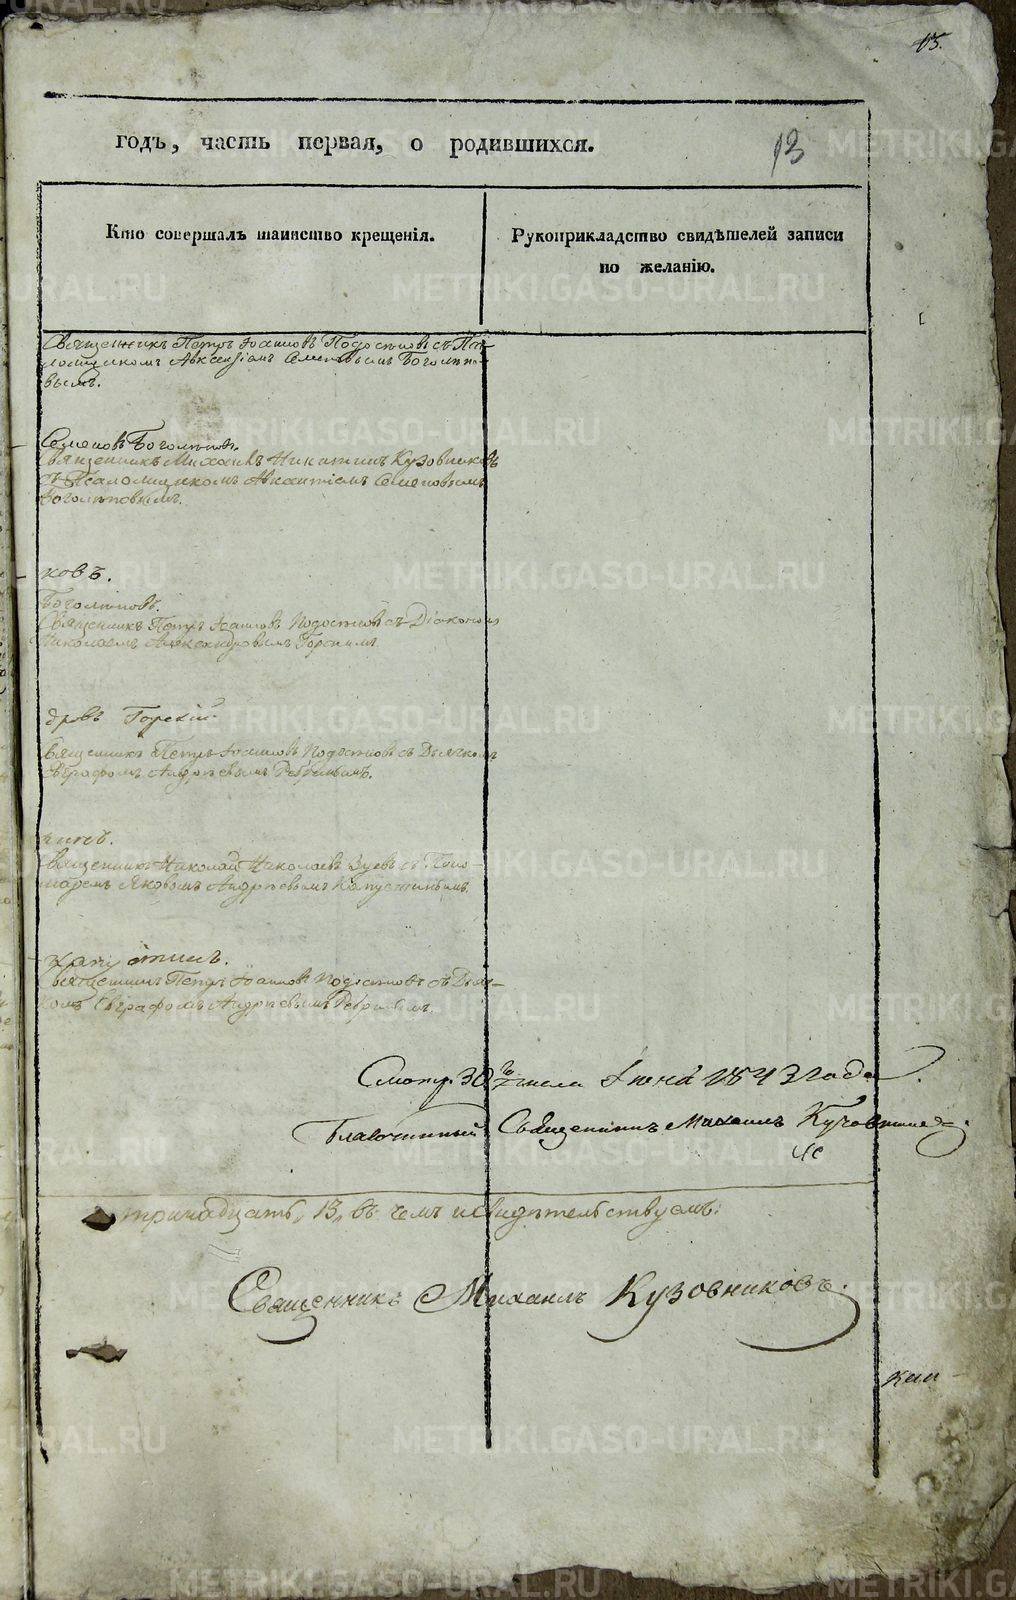 15.
годъ, часть первая, о родившихся.
13
Кто совершалъ таинство крещенія.
Рукоприкладство свидѣтелей записи
по желанію.
Священникъ Петръ Іоанновъ Подосеновъ съ Пса-
ломщикомъ Авксентіемъ Семеновымъ Боголѣпо-
вымъ.
Семеновъ Боголѣповъ.
Священникъ Михаилъ Никитинъ Кузовниковъ
съ Псаломщикомъ Семеновымъ
Боголѣповымъ.
ковъ.
Боголѣповъ.
Священникъ Петръ Іоанновъ съ Діакономъ
Николаемъ Александровымъ Горскимъ
дровъ Горскій.
Священникъ Петръ Іоанновъ съ Дьячкомъ
Евграфомъ Андреевымъ
Священникъ Николай Николаевъ Зуевъ съ Поно-
маремъ Яковомъ Андреевымъ Капустинымъ.
Капустинъ.
Священникъ Петръ Іоанновъ съ Дьяч-
комъ Евграфомъ Андреевымъ
Смотр. 30 числа Іюня 1843 года.
Благочинный Священникъ Михаилъ
тринадцать, 13, въ чемъ и свидѣтельствуемъ:
Священникъ Михаилъ Кузовниковъ.
METRIKI.GASO-URAL.RU